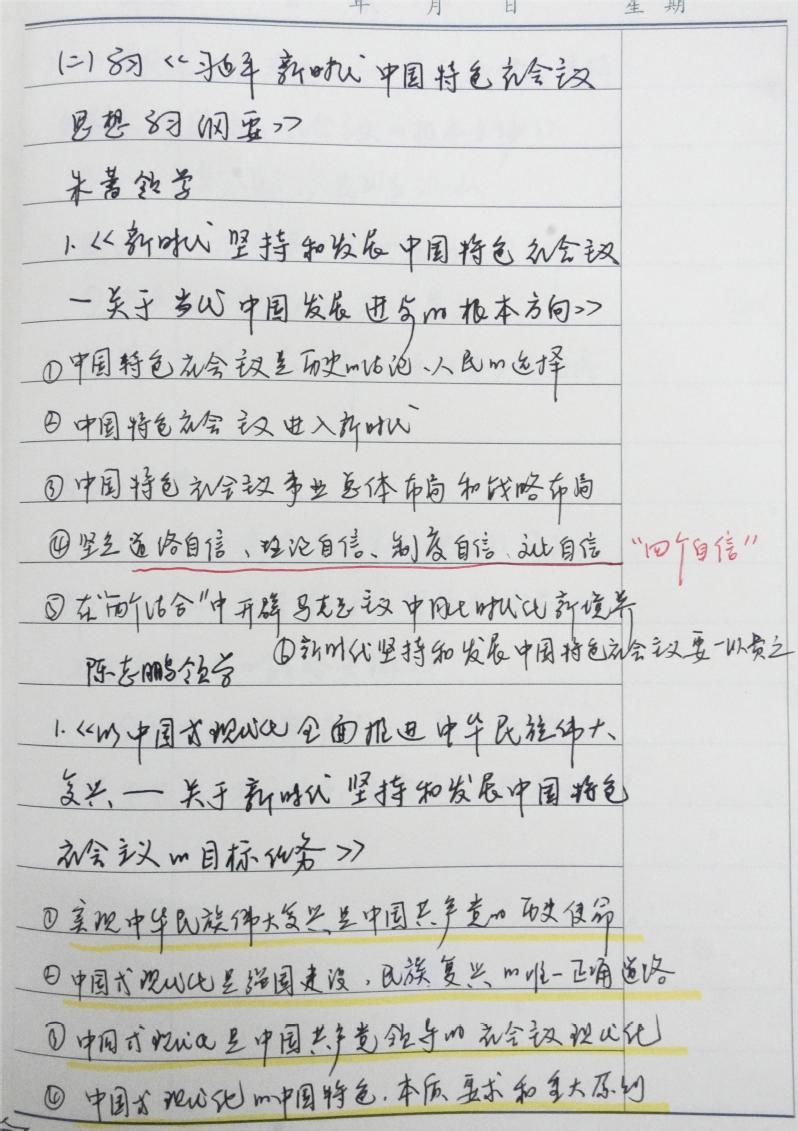 年 月 日 星期
(二) 学习《习近平新时代中国特色社会主义
思想学习纲要》
朱蕾领学
1.《新时代坚持和发展中国特色社会主义
—关于当代中国发展进步的根本方向》
①中国特色社会主义是历史的结论、人民的选择
②中国特色社会主义进入新时代
③中国特色社会主义事业总体布局和战略布局
④坚定道路自信、理论自信、制度自信、文化自信 “四个自信”
⑤在“两个结合”中开辟马克思主义中国化时代化新境界
⑥新时代坚持和发展中国特色社会主义要一以贯之
陈志鹏领学
1.《以中国式现代化全面推进中华民族伟大
复兴—关于新时代坚持和发展中国特色
社会主义的目标任务》
①实现中华民族伟大复兴是中国共产党的历史使命
②中国式现代化是强国建设、民族复兴的唯一正确道路
③中国式现代化是中国共产党领导的社会主义现代化
④中国式现代化的中国特色、本质要求和重大原则